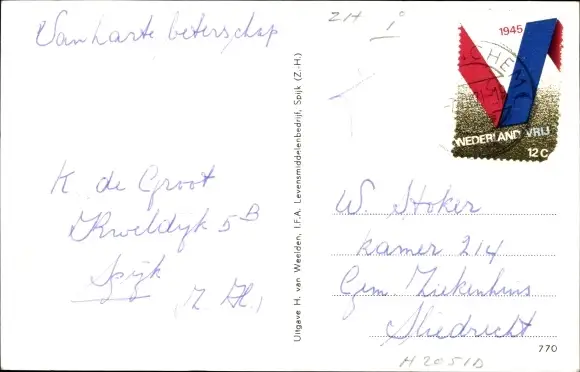 Van harte beterschap
K de Groot
Kweldijk 5B
Spijk
Z. H.
Uitgave H. van Weelden, I.F.A. Levensmiddelenbedrijf, Spijk (Z.-H.)
ZH i
1945
NEDERLAND VRIJ
12 C
W. Stoker
kamer 214
Gem Ziekenhuis
Sliedrecht
770
H2051D